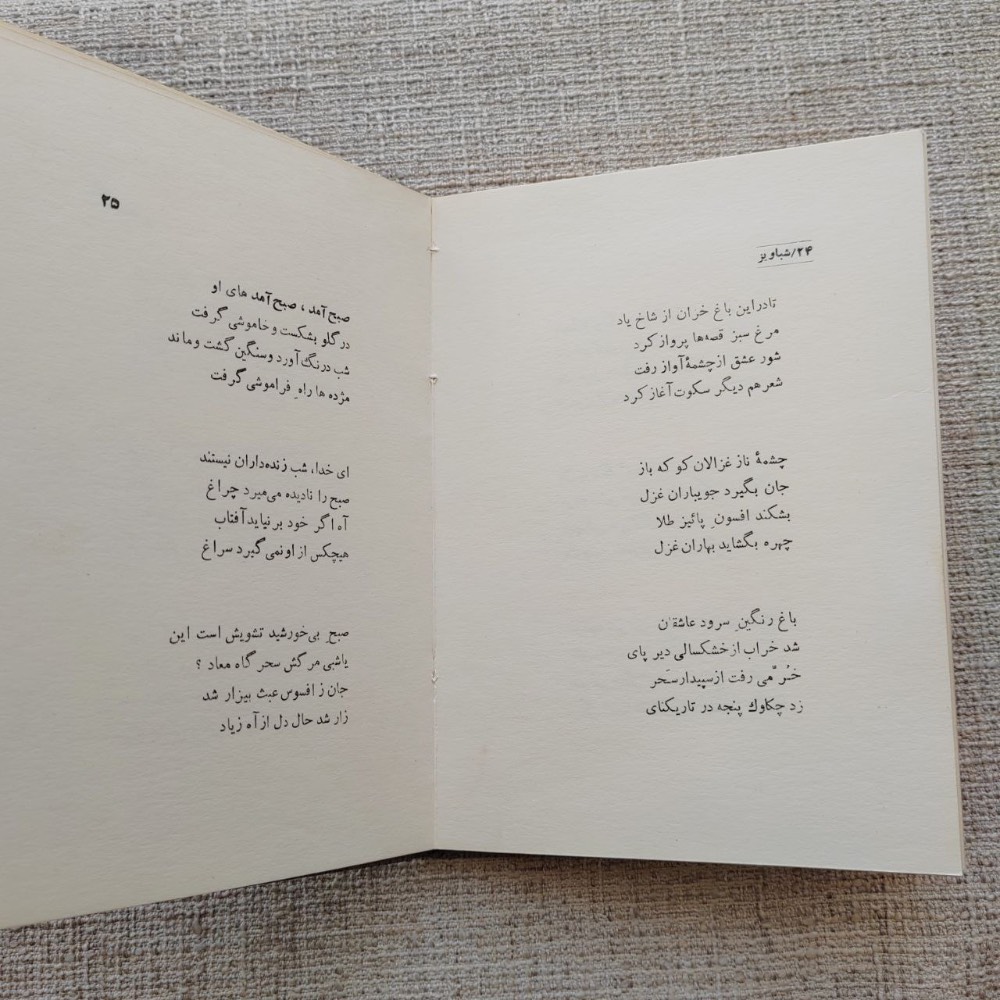 ۲۴/شباویز
تادراین باغ خران از شاخ یاد
مرغ سبز قصه‌ها پرواز کرد
شور عشق از چشمهٔ آواز رفت
شعرهم دیگر سکوت آغاز کرد
چشمهٔ ناز غزالان کو که باز
جان بگیرد جویباران غزل
بشکند افسونِ پائیز طلا
چهره بگشاید بهاران غزل
باغ رنگینِ سرود عاشقان
شد خراب از خشکسالی دیر پای
خُرّمی رفت از سپیدار سَحر
زد چکاوك پنجه در تاریکنای
۲۵
صبح آمد، صبح آمد های او
در گلو بشکست و خاموشی گرفت
شب درنگ آورد و سنگین گشت و ماند
مژده ها راهِ فراموشی گرفت
ای خدا، شب زنده‌داران نیستند
صبح را نادیده می‌میرد چراغ
آه اگر خود بر نیاید آفتاب
هیچکس از او نمی گیرد سراغ
صبحِ بی‌خورشید تشویش است این
یاشبی مرگش سحر گاه معاد ؟
جان ز افسوس عبث بیزار شد
زار شد حال دل از آه زیاد